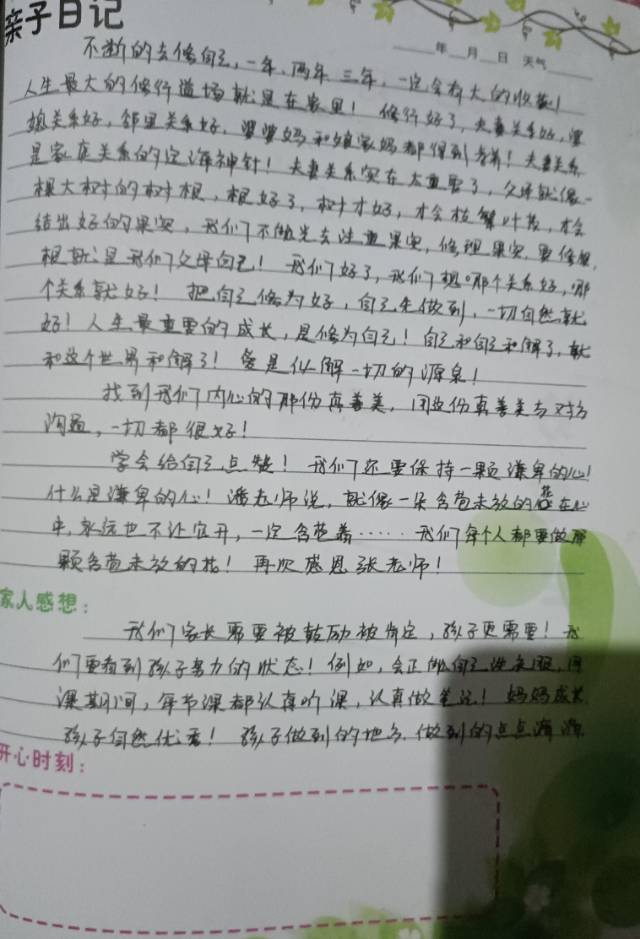 亲子日记
年 月 日 天气
不断的去修自己,一年,两年三年,一定会有大的收获!
人生最大的修行道场就是在家里!修行好了,夫妻关系好,婆
媳关系好,邻里关系好,婆婆妈和娘家妈都得到孝养!夫妻关系
是家庭关系的定海神针!夫妻关系实在太重要了,父母就像一
棵大树的树根,根好了,树才好,才会枝繁叶茂,才会
结出好的果实,我们不能光去注重果实,修理果实,要修根,
根就是我们父母自己!我们好了,我们想哪个关系好,哪
个关系就好!把自己修为好,自己先做到,一切自然就
好!人生最重要的成长,是修为自己!自己和自己和解了,就
和这个世界和解了!爱是化解一切的源泉!
找到我们内心的那份真善美,用这份真善美与对方
沟通,一切都很好!
学会给自己点赞!我们还要保持一颗谦卑的心!
什么是谦卑的心!潘老师说,就像一朵含苞未放的花在心
中,永远也不让它开,一定含苞着……我们每个人都要做那
颗含苞未放的花!再次感恩张老师!
家人感想:
我们家长需要被鼓励被肯定,孩子更需要!我
们要看到孩子努力的状态!例如,会正做自己
课期间,每节课都认真听课,认真做笔记!妈妈成长
孩子自然优秀!孩子做到的地方,做到的点点滴滴
开心时刻: